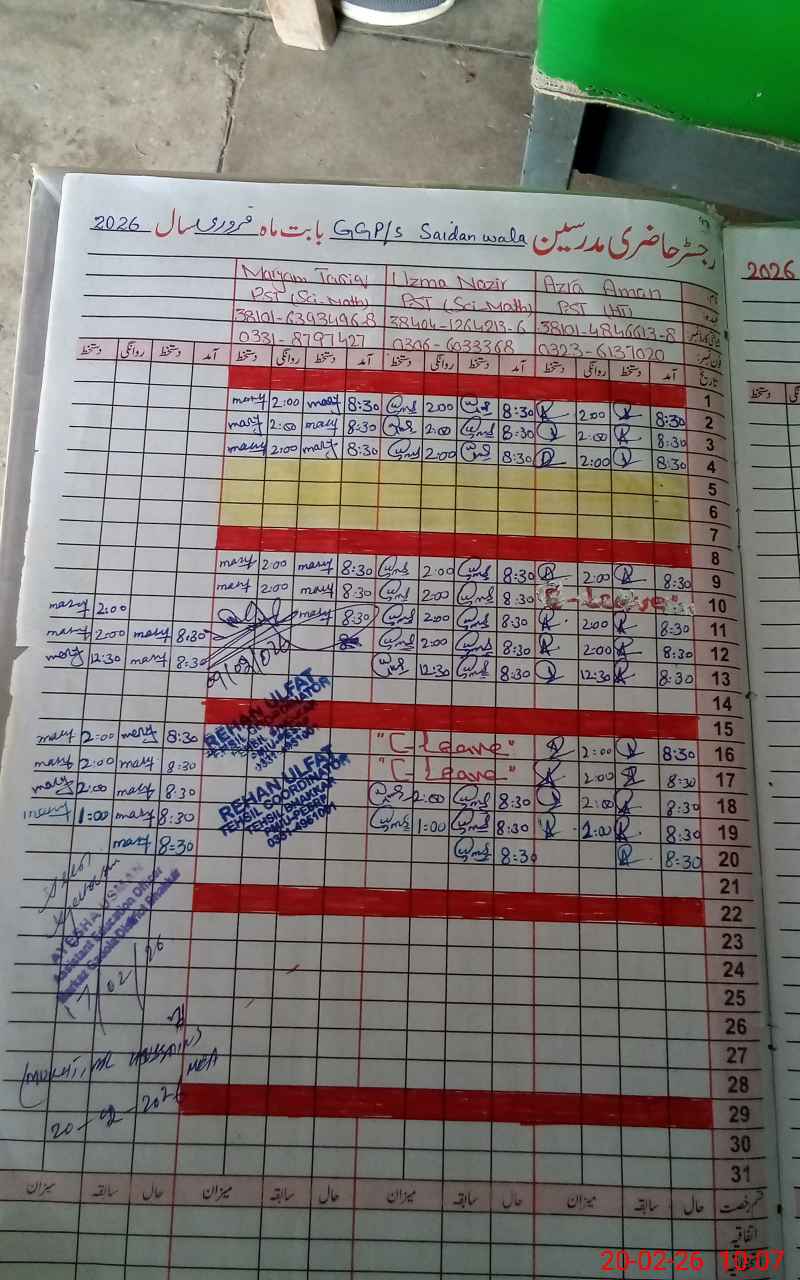 رجسٹر حاضری مدرسین GGP/s Saidan wala بابت ماہ فروری سال 2026
2026
Azra Aman Uzma Nazir Maryam Tariq
PST (HT) PST (Sci-Math) PST (Sci-Math)
38101-4846613-8 38404-1264213-6 38101-6393496-8
0323-6137020 0306-6033368 0331-8797427
تاریخ آمد دستخط روانگی دستخط آمد دستخط روانگی دستخط آمد دستخط روانگی دستخط آمد دستخط روانگی دستخط
1
2 8:30 2:00 8:30 2:00 8:30 mary 2:00 mary
3 8:30 2:00 8:30 2:00 8:30 mary 2:00 mary
4 8:30 2:00 8:30 2:00 8:30 mary 2:00 mary
5
6
7
8
9 8:30 2:00 8:30 2:00 8:30 mary 2:00 mary
10 E-Leave 8:30 2:00 8:30 mary 2:00 mary
11 8:30 2:00 8:30 2:00 8:30 mary 2:00 mary
12 8:30 2:00 8:30 2:00 8:30 mary 2:00 mary
13 8:30 12:30 8:30 12:30 8:30 mary 12:30 mary
14
15
16 8:30 2:00 "C-Leave" 8:30 mary 2:00 mary
17 8:30 2:00 "C-Leave" 8:30 mary 2:00 mary
18 8:30 2:00 8:30 2:00 8:30 mary 2:00 mary
19 8:30 1:00 8:30 1:00 8:30 mary 1:00 mary
20 8:30 8:30 8:30 mary
21
22
23
24
25
26
27
28
29
30
31
REHAN ULFAT
TEHSIL COORDINATOR
REHAN ULFAT
TEHSIL COORDINATOR
TEHSIL BHAKKAR
PMIU-PESRP
AYESHA USMAN
Assistant Education Officer
17/02/26
MEA
20-02-2026
قسم رخصت حال سابقہ میزان حال سابقہ میزان حال سابقہ میزان حال سابقہ میزان
اتفاقیہ
20-02-26 10:07